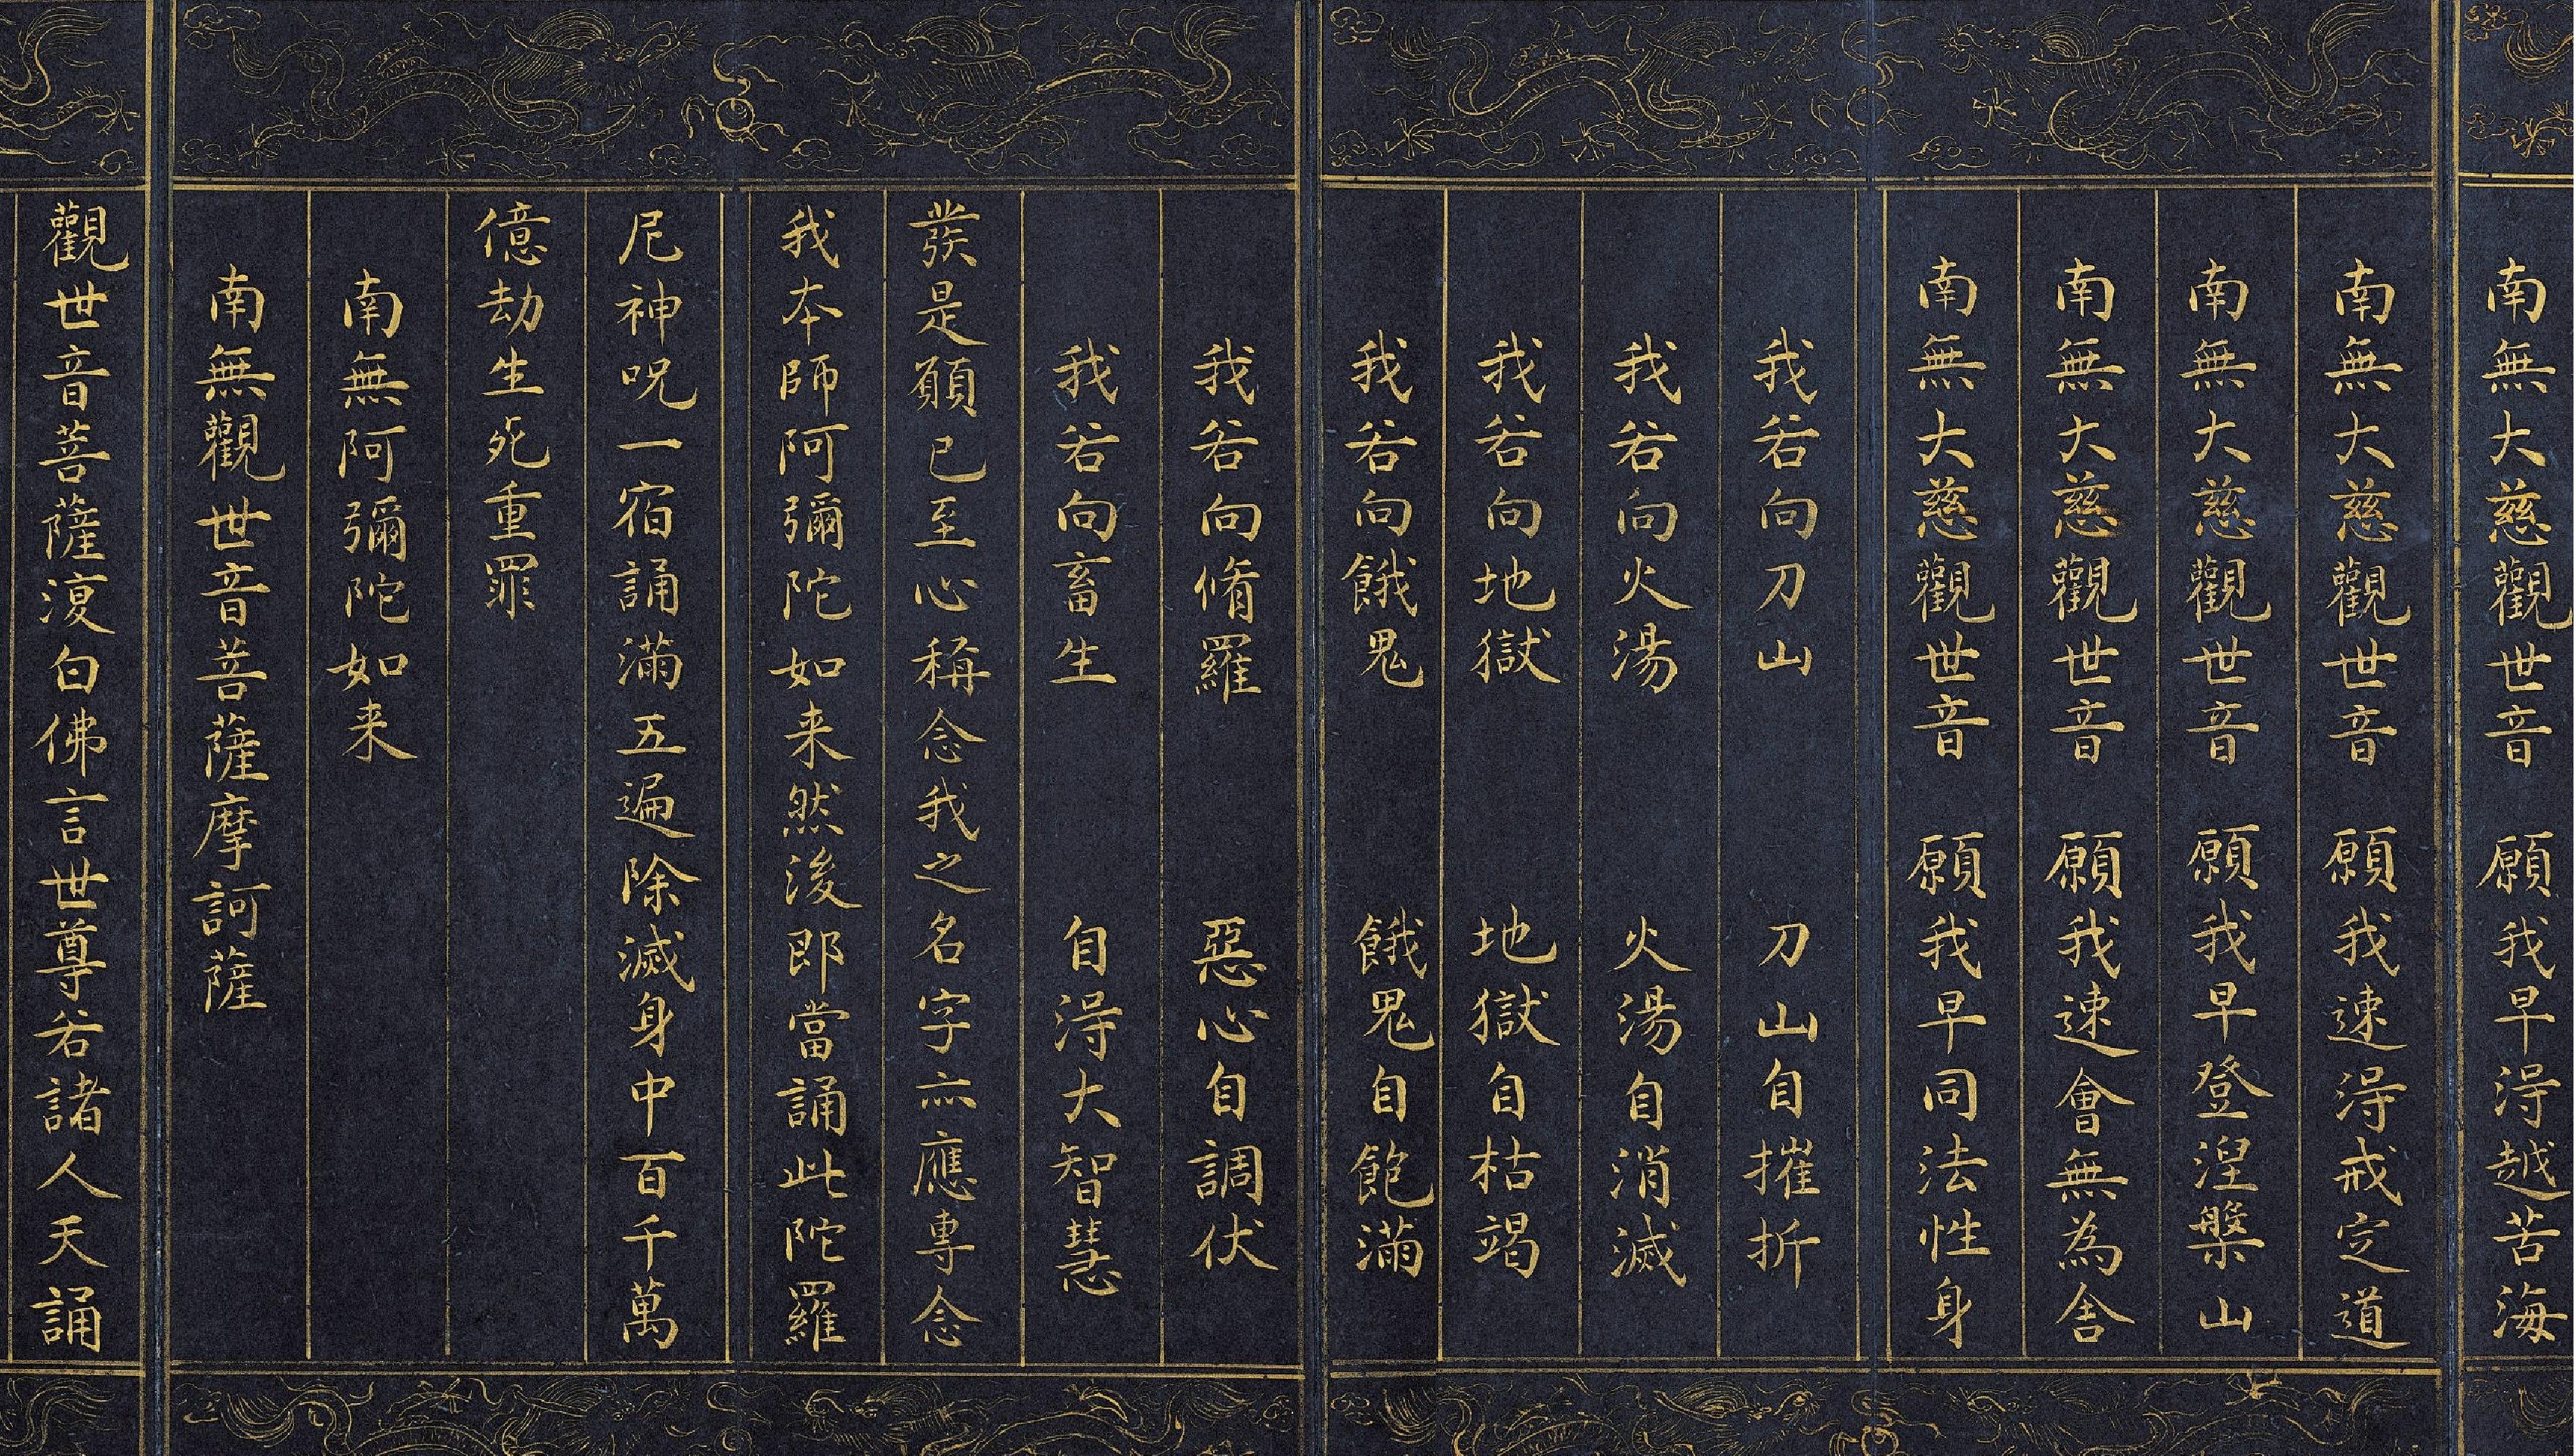 南無大慈觀世音　願我早淂越苦海
南無大慈觀世音　願我速淂戒定道
南無大慈觀世音　願我早登涅槃山
南無大慈觀世音　願我速會無為舎
南無大慈觀世音　願我早同法性身
我若向刀山　刀山自摧折
我若向火湯　火湯自消滅
我若向地獄　地獄自枯竭
我若向餓鬼　餓鬼自飽滿
我若向脩羅　惡心自調伏
我若向畜生　自淂大智慧
發是願已至心稱念我之名字亦應專念
我本師阿彌陀如来然後即當誦此陀羅
尼神呪一宿誦滿五遍除滅身中百千萬
億劫生死重罪
南無阿彌陀如来
南無觀世音菩薩摩訶薩
觀世音菩薩復白佛言世尊若諸人天誦